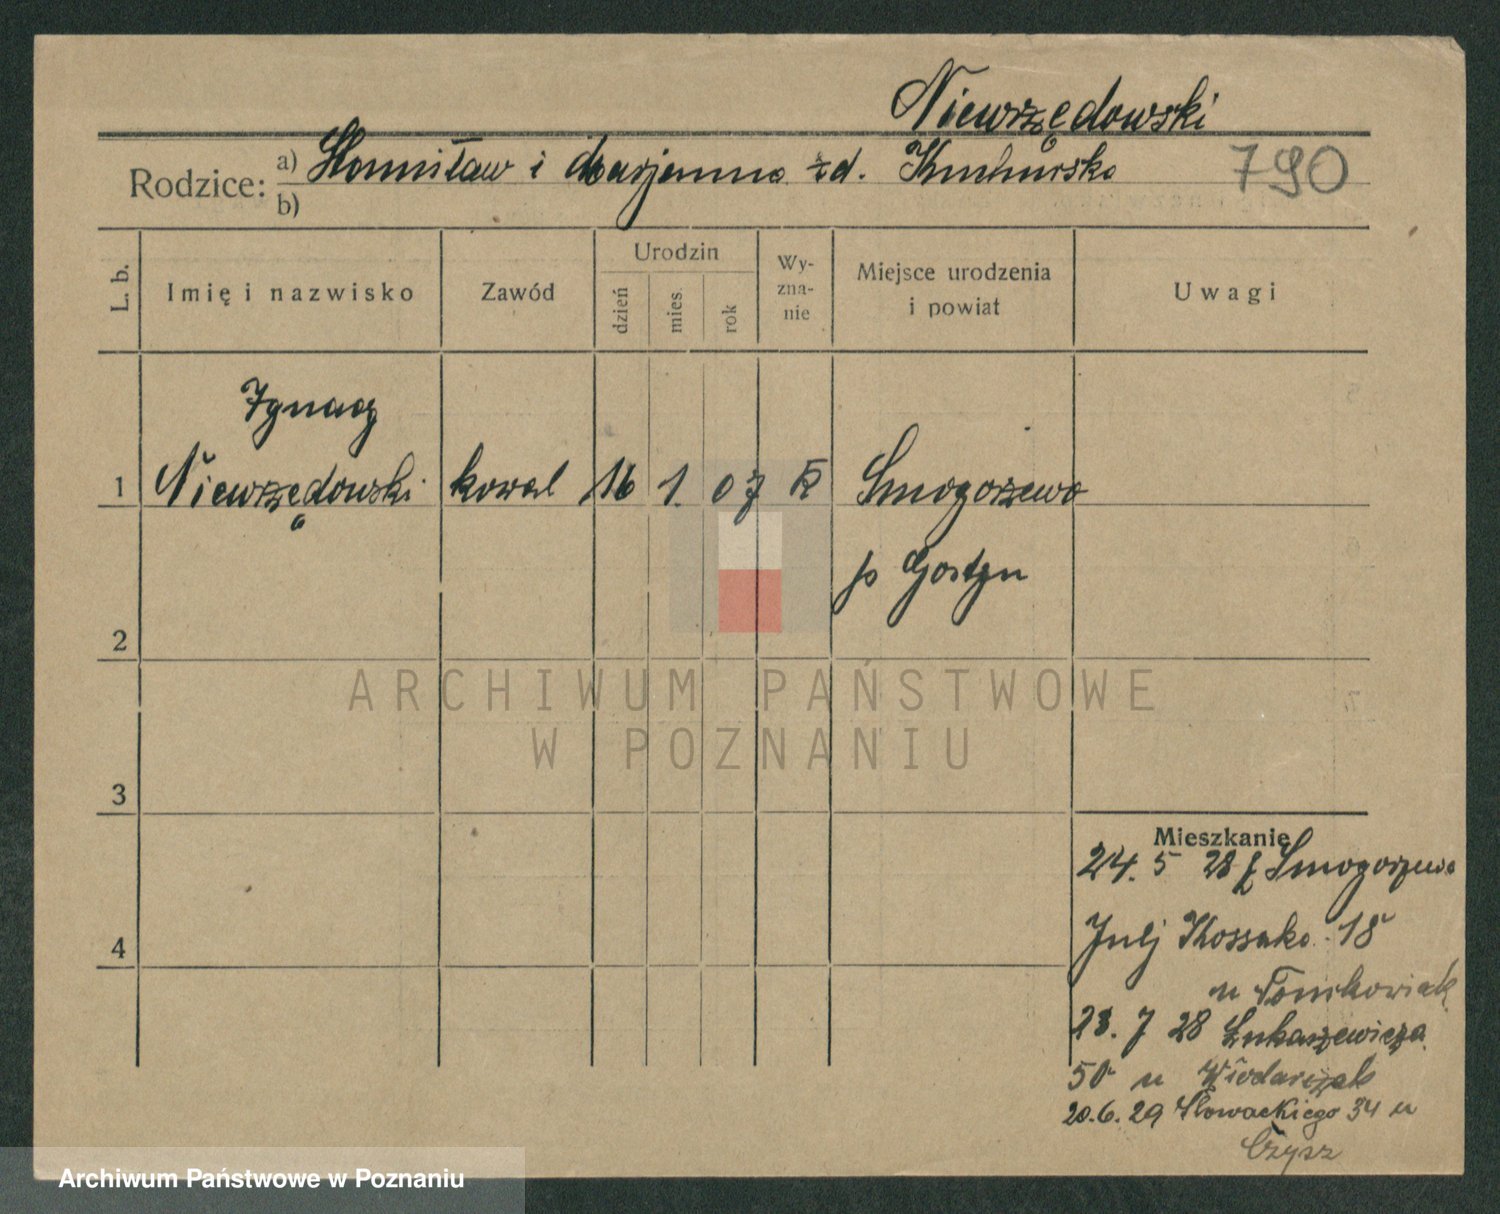 Niewrzędowski
Rodzice: a) Stanisław i Marjanna zd.
790
b)
L. b.
Imię i nazwisko
Zawód
Urodzin
dzień
mies.
rok
Wy-
zna-
nie
Miejsce urodzenia
i powiat
Uwagi
Ignacy
1 Niewrzędowski kowal 16 1. 07 K Smogorzewo
p Gostyn
2
ARCHIWUM PAŃSTWOWE
W POZNANIU
3
Mieszkanie
24. 5 28 z Smogorzewo
4
Julj Kossaka 18
u Tomkowiak
23. 7 28 Łukaszewicza
50 u Włodarczak
20.6.29 Słowackiego 34 u
Czysz
Archiwum Państwowe w Poznaniu